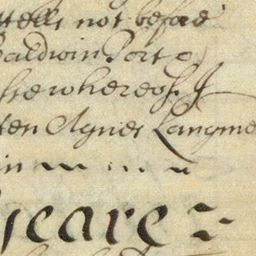 ttells not before
Baldwin Porte
whereof I
ten Agnes Langme
in
yeare